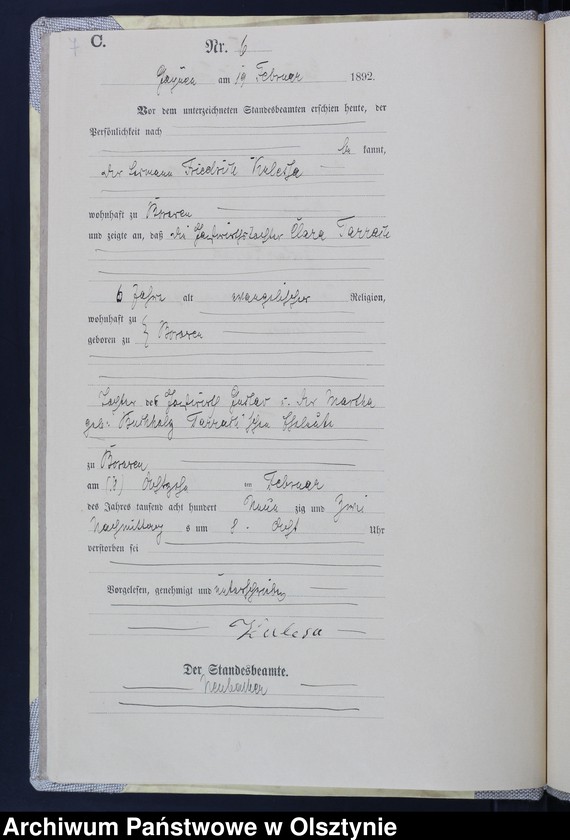 7 C.
Nr. 6
am 19 Februar 1892.
Vor dem unterzeichneten Standesbeamten erschien heute, der
Persönlichkeit nach
be kannt,
der Friedrich Kulessa
wohnhaft zu Borowen
und zeigte an, daß die Gastwirthstochter Clara
6 Jahre alt evangelischer Religion,
wohnhaft zu
geboren zu Borowen
Tochter des Gastwirth Gustav u. der Martha
geb: Buchholz Eheleute
zu Borowen
am (18) Achtzehn im Februar
des Jahres tausend acht hundert Neun zig und Zwei
Nachmittag s um 8. Acht Uhr
verstorben sei
Vorgelesen, genehmigt und unterschrieben
Kulessa
Der Standesbeamte.
Archiwum Państwowe w Olsztynie